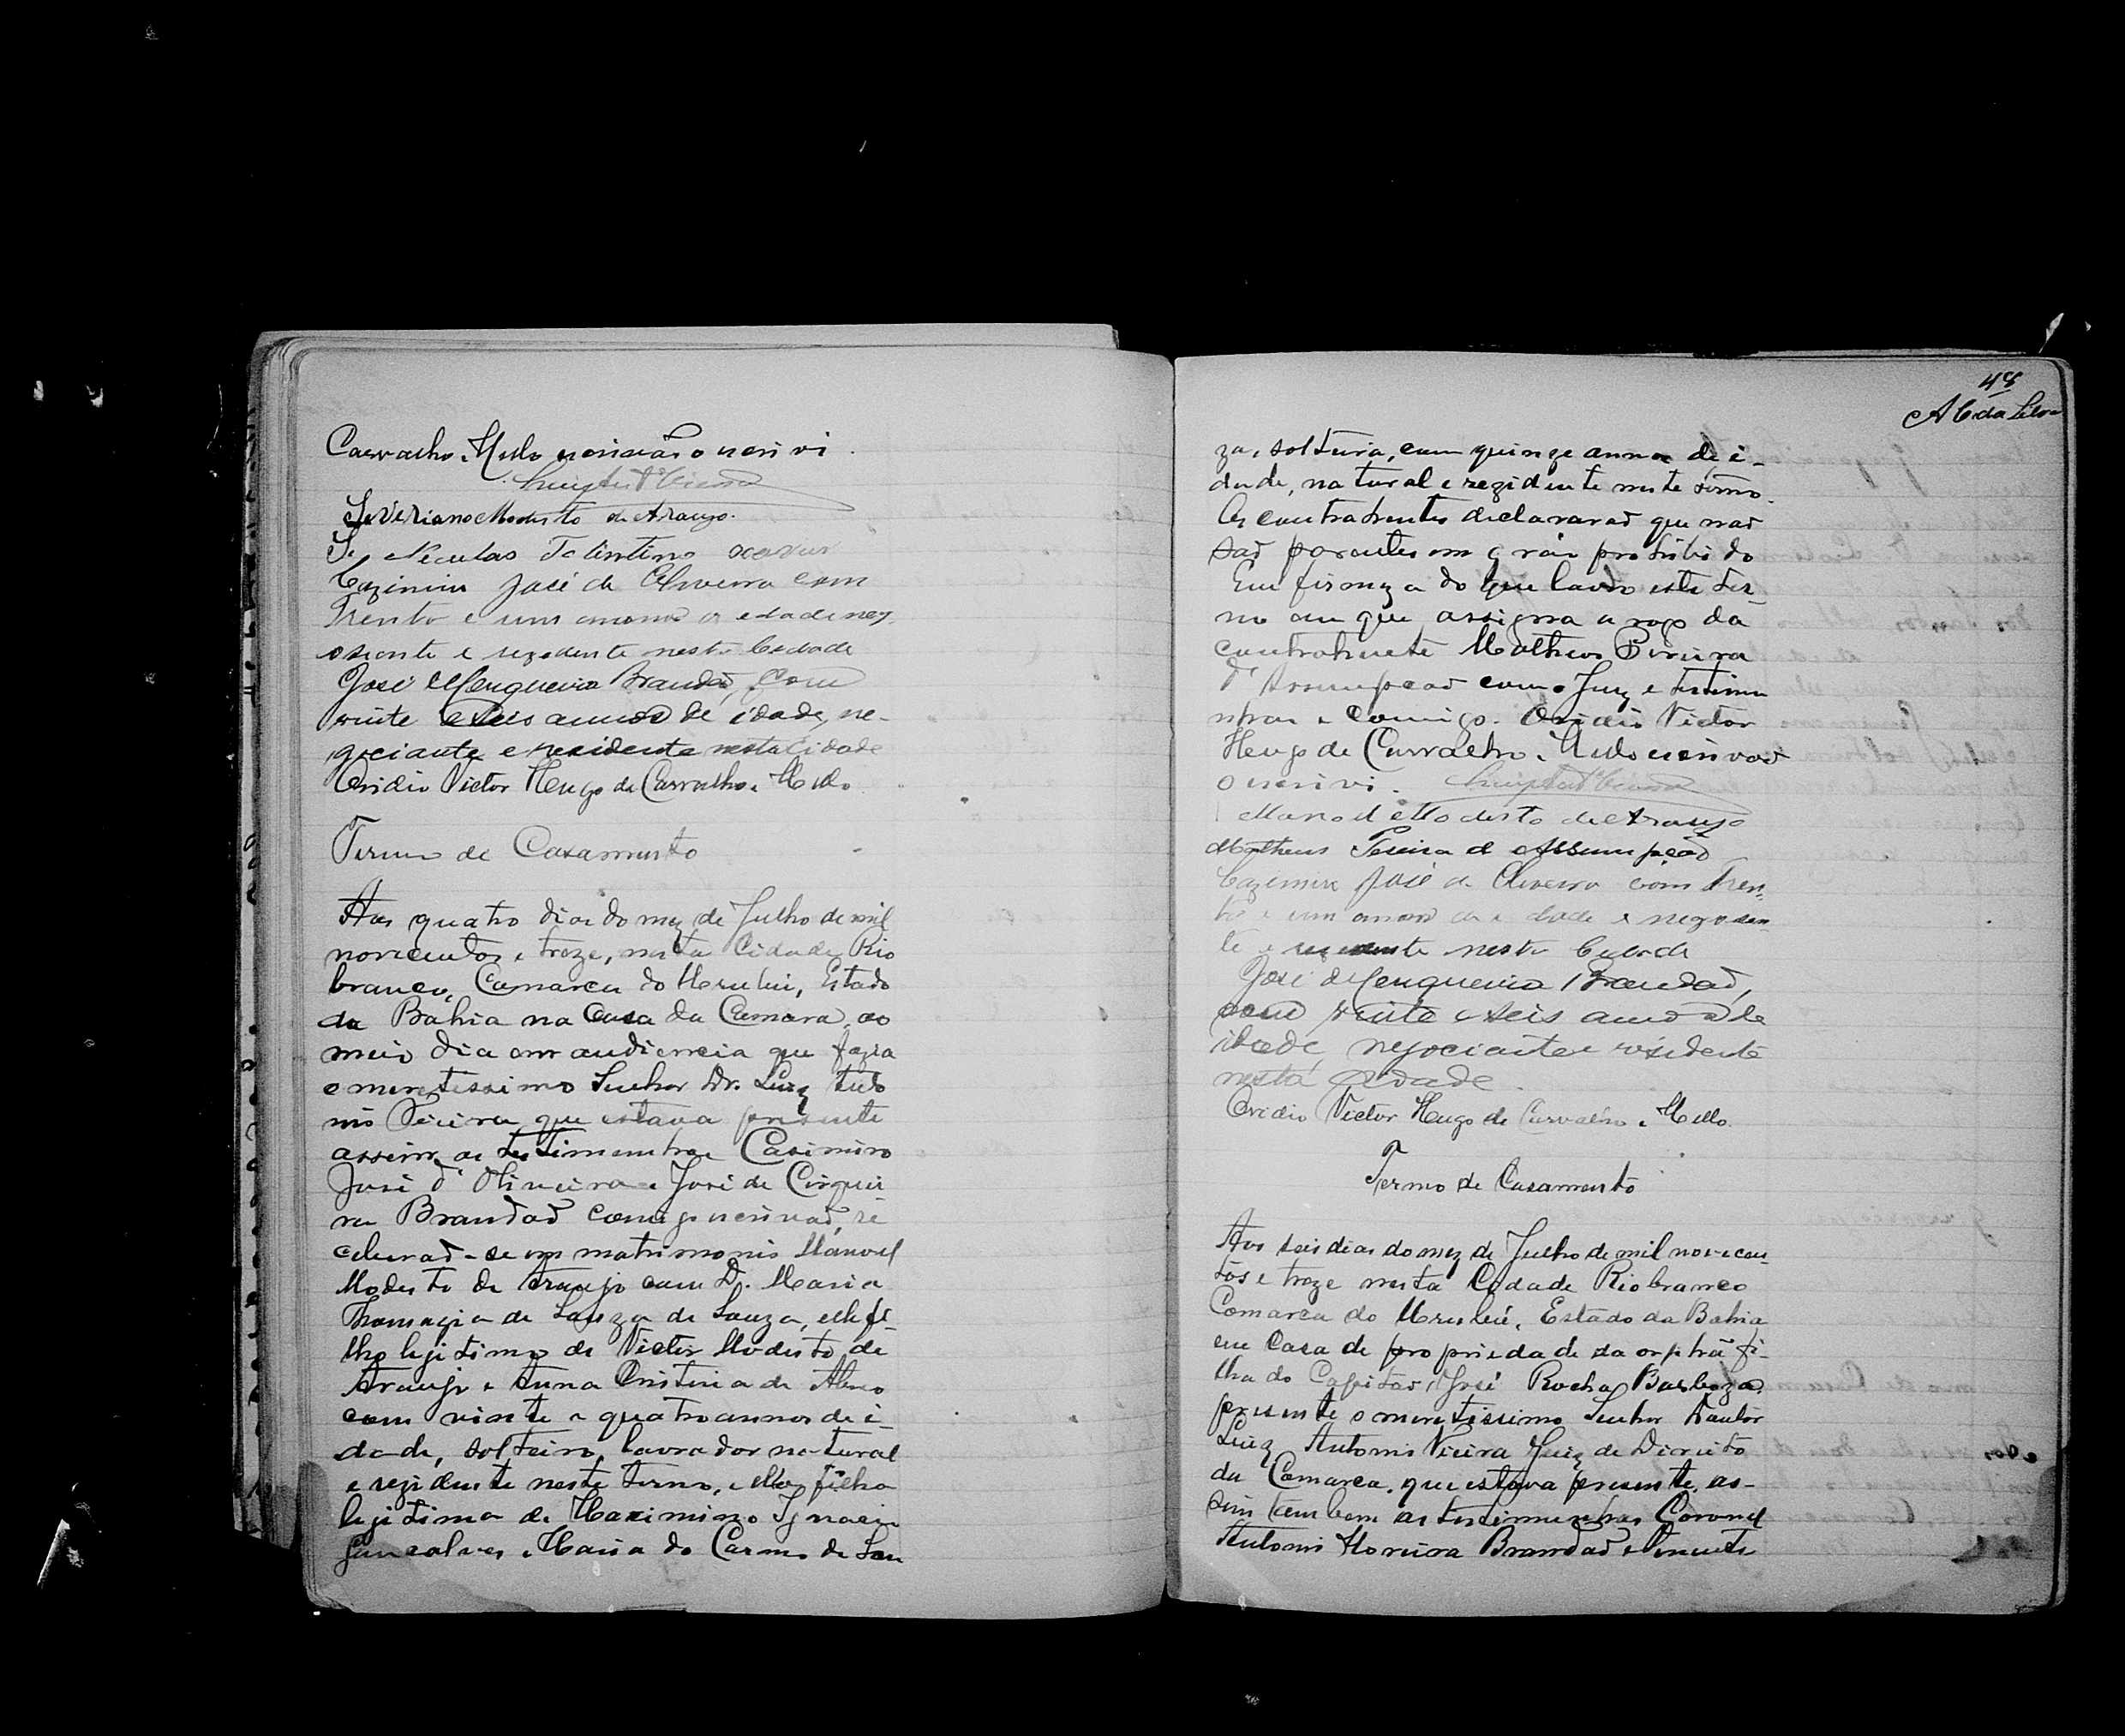 Carvalho e Mello escrivão o escrevi.
Severiano Modesto de Araujo.
Tolintino
José de Oliveira com
Trenta e um annos de edade neg
osiente e rezedente nesta Cedade
José Cerqueira Brandão, com
vinte e seis annos de idade, ne-
gociante e residente nesta Cidade
Ovidio Victor Hugo de Carvalho e Mello.
Termo de Casamento
Aos quatro dias do mez de Julho de mil
novecentos e treze, nesta Cidade Rio
branco, Comarca do Urubú, Estado
da Bahia na Casa da Camara, ao
meio dia em audiencia que fazia
o meretissimo Senhor Dr. Luiz Anto
nio Vieira que estava presente
assim as testimunhas Casimiro
José d'Oliveira e José de Cirquei
ra Brandão comigo escrivão, re
ceberaõ-se em matrimonio Manoel
Modesto de Araujo com D. Maria
de Souza de Souza, elle fi-
lho legitimo de Victor Modesto de
Araujo e Anna de
com vinte e quatro annos de i-
dade, solteiro, lavrador natural
e rezidente neste termo, e ella filha
legitima de Maximino Ignacio
Gonçalves e Maria do Carmo de Sou
48
A C da Silva
za, solteira, com quinze annos de i-
dade, natural e rezidente neste termo.
Os contrahentes declararaõ que naõ
saõ parentes em gráo prohibido
Em firmeza do que lavro este ter-
mo em que assigna a rogo da
contrahente Matheus Pereira
d'Assumpçaõ com o Juiz e testimu
nhas e comigo. Ovidio Victor
Hugo de Carvalho e Mello escrivaõ
o escrivi.
Manoel Modesto de Araujo
Matheus Pereira d Assumpçaõ
Cazemiro José de Oliveira com tren-
ta e um annos de edade e negosien
te e rezedente nesta Cedade
José de Cerqueira Brandaõ,
com vinte e seis annos de
idade, negociante e residente
nesta cidade.
Ovidio Victor Hugo de Carvalho e Mello.
Termo de Casamento
Aos seis dias do mez de Julho de mil novecen
tos e treze nesta Cidade Riobranco
Comarca do Urubú, Estado da Bahia
em Casa de propriedade da orphã fi-
lha do Capitaõ José Rocha Barboza,
presente o meretissimo Senhor Doutor
Luiz Antonio Vieira Juiz de Direito
da Comarca, que estava presente, as-
sim tambem as testimunhas Coronel
Antonio Moreira Brandaõ e Vicente